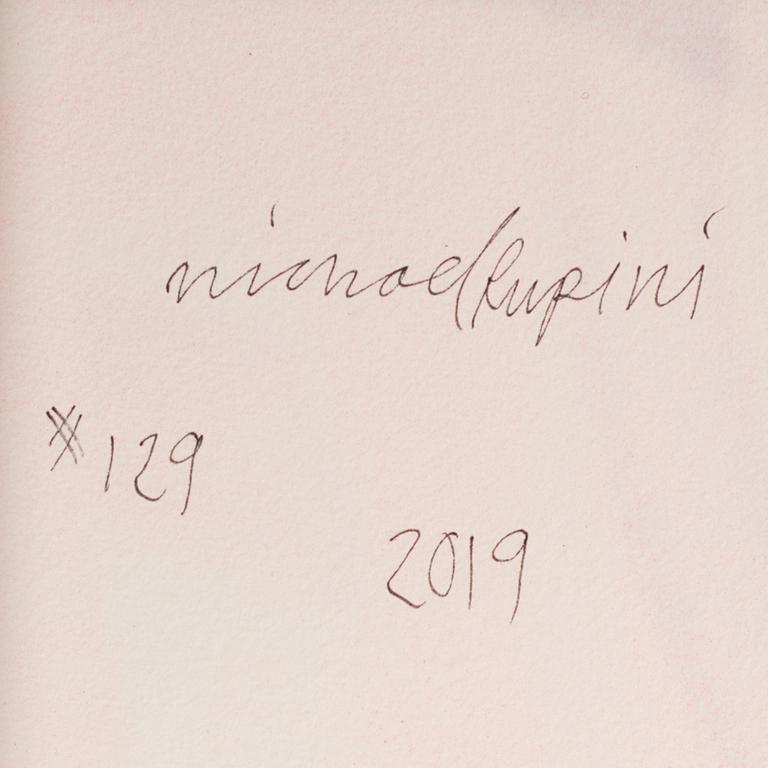 michael rupini
#129
2019